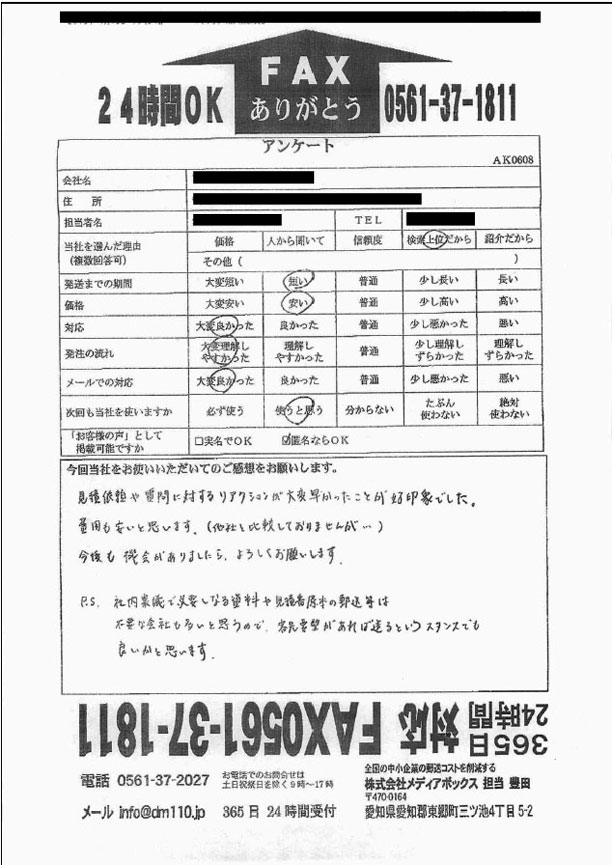 FAX
ありがとう
24時間OK
0561-37-1811
アンケート
AK0608
会社名
住 所
担当者名 TEL
当社を選んだ理由(複数回答可) 価格 人から聞いて 信頼度 検索上位だから 紹介だから
その他 ( )
発送までの期間 大変短い 短い 普通 少し長い 長い
価格 大変安い 安い 普通 少し高い 高い
対応 大変良かった 良かった 普通 少し悪かった 悪い
発注の流れ 大変理解しやすかった 理解しやすかった 普通 少し理解しずらかった 理解しずらかった
メールでの対応 大変良かった 良かった 普通 少し悪かった 悪い
次回も当社を使いますか 必ず使う 使うと思う 分からない たぶん使わない 絶対使わない
「お客様の声」として掲載可能ですか □実名でOK ☑匿名ならOK
今回当社をお使いいただいてのご感想をお願いします。
見積依頼や質問に対するリアクションが大変早かったことが好印象でした。
費用も安いと思います。(他社と比較しておりませんが…)
今後も機会がありましたら、よろしくお願いします。
P.S. 社内稟議で必要となる資料や見積書原本の郵送等は
不要な会社も多いと思うので、客先要望があれば送るというスタンスでも
良いかと思います。
365日24時間 対応 FAX0561-37-1811
電話 0561-37-2027 お電話でのお問合せは
土日祝祭日を除く9時~17時
メール info@dm110.jp 365日24時間受付
全国の中小企業の郵送コストを削減する
株式会社メディアボックス 担当 豊田
〒470-0164
愛知県愛知郡東郷町三ツ池4丁目5-2